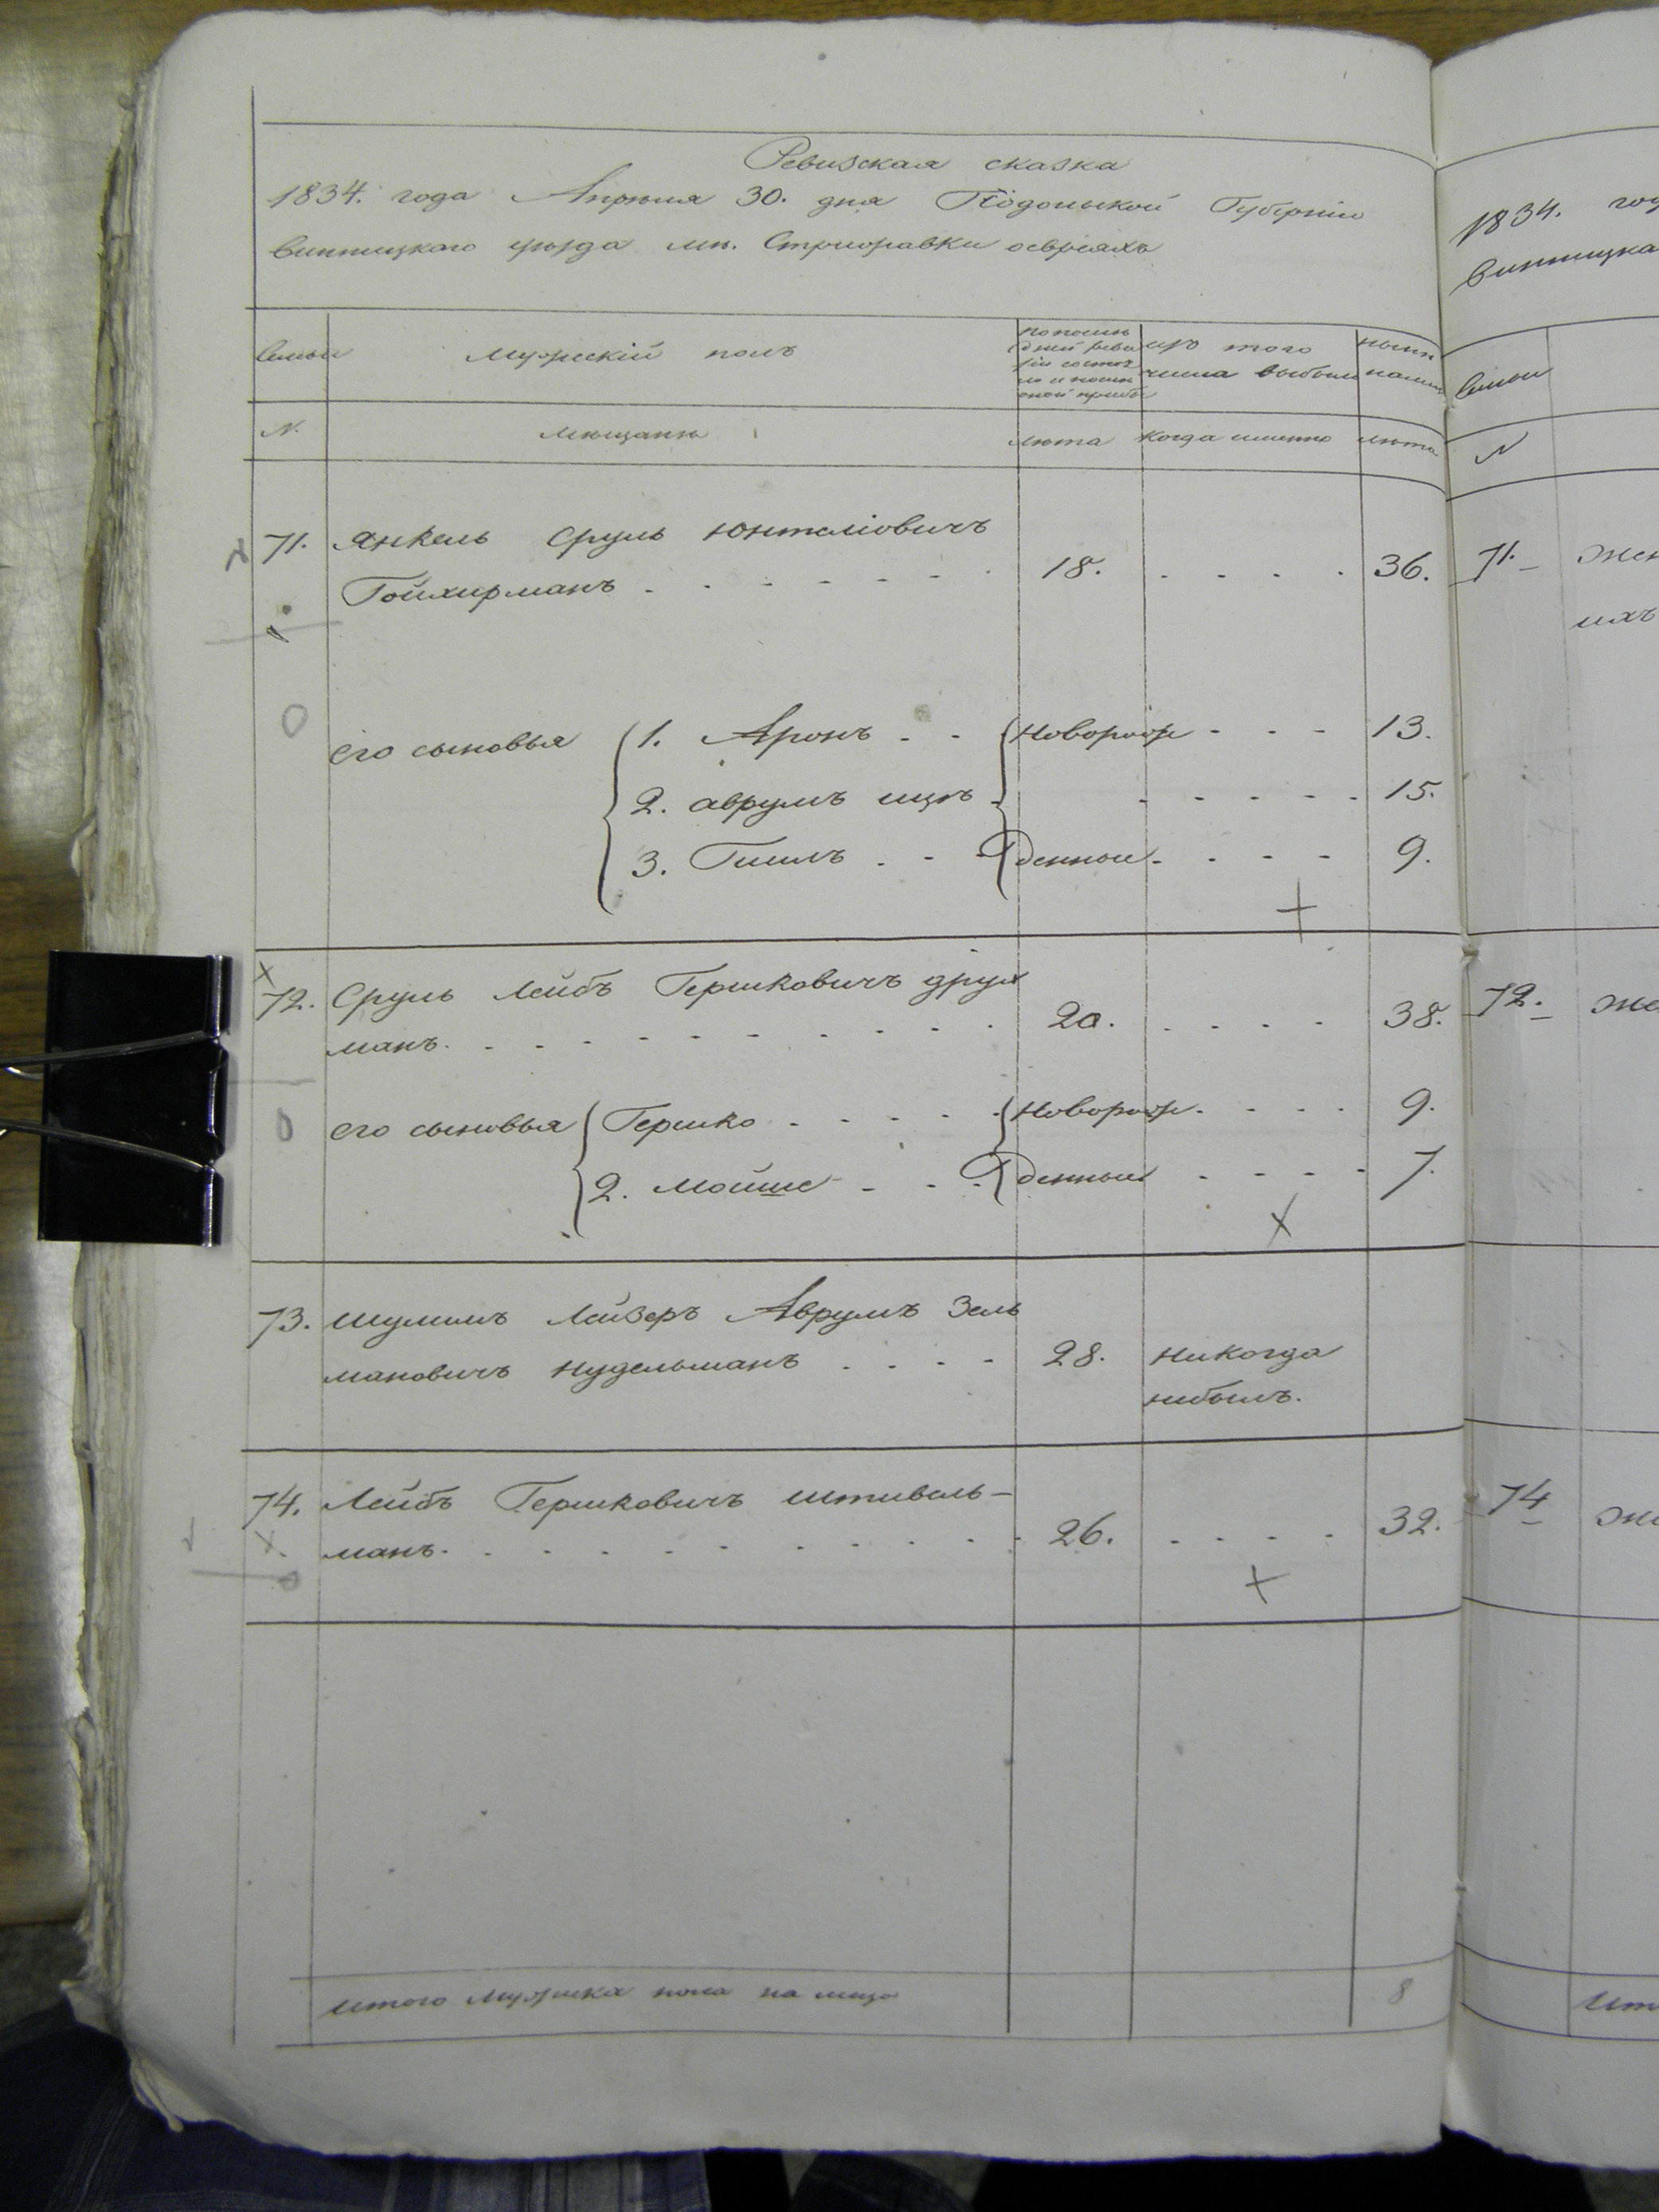 Ревизская сказка
1834. года Апреля 30. дня Подольской Губерніи
Винницкаго уезда мѣ. Стрижавки оевреяхъ
Семьи
Мужескій полъ
изъ того
числа выбыли
ныне
N.
Мѣщанѣ
лѣта
когда именно
лѣта
71. Янкель Сруль Юнтеліовичъ
Гойхирманъ . . . . . . . 18. . . . . 36.
его сыновья
1. Аронъ . . Новорож - - - 13.
2. аврумъ ицкъ . . . . . 15.
3. Гилилъ . . денные . . . . 9.
72. Сруль Лейбъ Гершковичъ друх
манъ . . . . . . . . . 20. . . . . 38.
его сыновья Гершко . . . . . Новорож . . . . 9.
2. Мойше - . . денные - - - - 7.
73. Шулимъ Лейзеръ Аврумъ Зель
мановичъ Нудельманъ . . . . 28. никогда
небылъ.
74. Лейбъ Гершковичъ Штивель-
манъ . . . . . . . . . . 26. . . . . 32.
Итого Мужеска пола на лицо 8
1834. год
Винницка
Семьи
N
71. Жен
ихъ
72. Же
74 Же
Ит